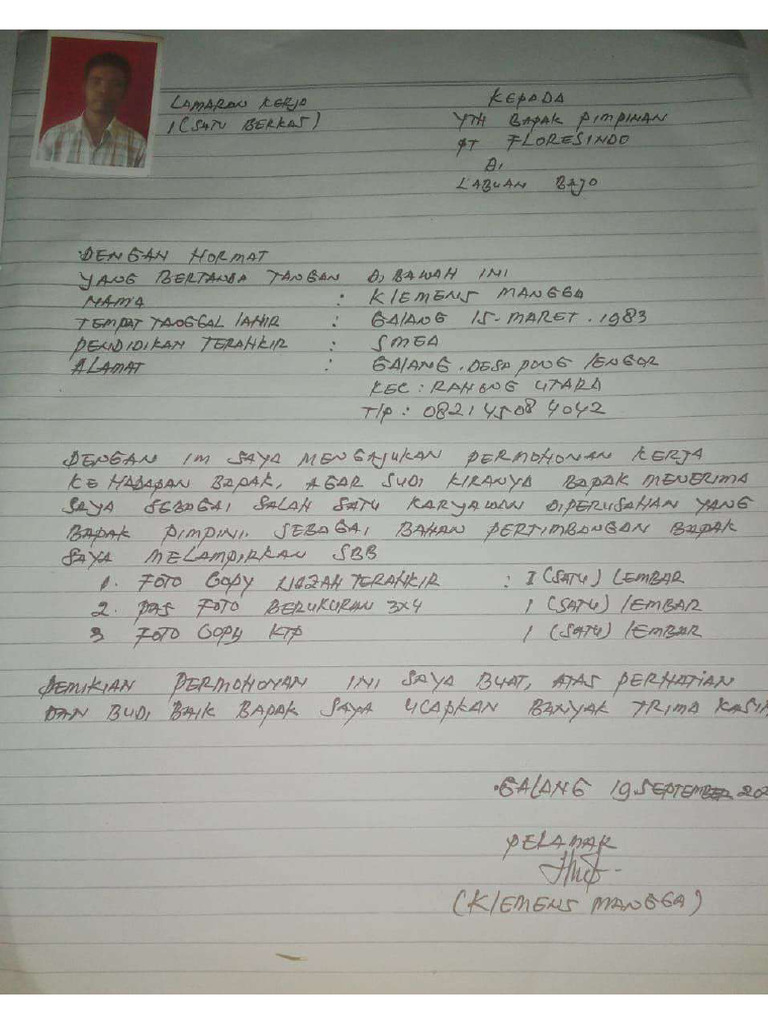 LAMARAN KERJA
1 (SATU BERKAS)
KEPADA
YTH BAPAK PIMPINAN
PT FLORESINDO
DI
LABUAN BAJO
DENGAN HORMAT
YANG BERTANDA TANGAN DI BAWAH INI
NAMA : KLEMENS MANGGA
TEMPAT TANGGAL LAHIR : GALANG 15-MARET.1983
PENDIDIKAN TERAHKIR : SMEA
ALAMAT : GALANG.DESA PONG LENGOR
KEC : RAHONG UTARA
Tlp : 0821 4508 4042
DENGAN INI SAYA MENGAJUKAN PERMOHONAN KERJA
KE HADAPAN BAPAK, AGAR SUDI KIRANYA BAPAK MENERIMA
SAYA SEBAGAI SALAH SATU KARYAWAN DIPERUSAHAN YANG
BAPAK PIMPINI. SEBAGAI BAHAN PERTIMBANGAN BAPAK
SAYA MELAMPIRKAN SBB
1. FOTO COPY IJAZAH TERAHKIR : I (SATU) LEMBAR
2. PAS FOTO BERUKURAN 3X4 1 (SATU) LEMBAR
3 FOTO COPY KTP 1 (SATU) LEMBAR
DEMIKIAN PERMOHONAN INI SAYA BUAT, ATAS PERHATIAN
DAN BUDI BAIK BAPAK SAYA UCAPKAN BANYAK TRIMA KASIH
GALANG 19 SEPTEMBER 202
PELAMAR
(KLEMENS MANGGA)